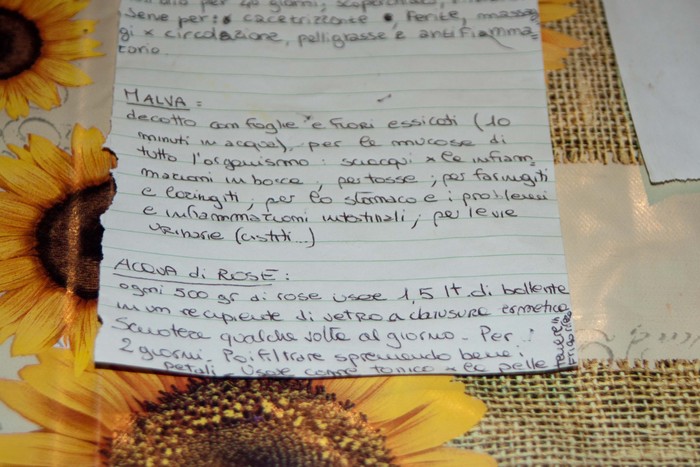 per 40 giorni,
Serve per: cacetrizzante, Ferite, massag
gi x circolazione, pelli grasse e antifiamma=
torio.
MALVA =
decotto con foglie e fiori essicati (10
minuti in acqua), per le mucose di
tutto l'organismo: sciacqui x le infiam=
mazioni in bocca, per tosse, per faringiti
e laringiti, per lo stomaco e i problemi
e infiammazioni intestinali, per le vie
urinarie (cistiti...)
ACQUA di ROSE:
ogni 500 gr di rose usare 1,5 lt. di bollente
in un recipiente di vetro a chiusura ermetica
Scuotere qualche volta al giorno. Per
2 giorni. Poi filtrare spremendo bene i
petali. Usare come tonico x la pelle